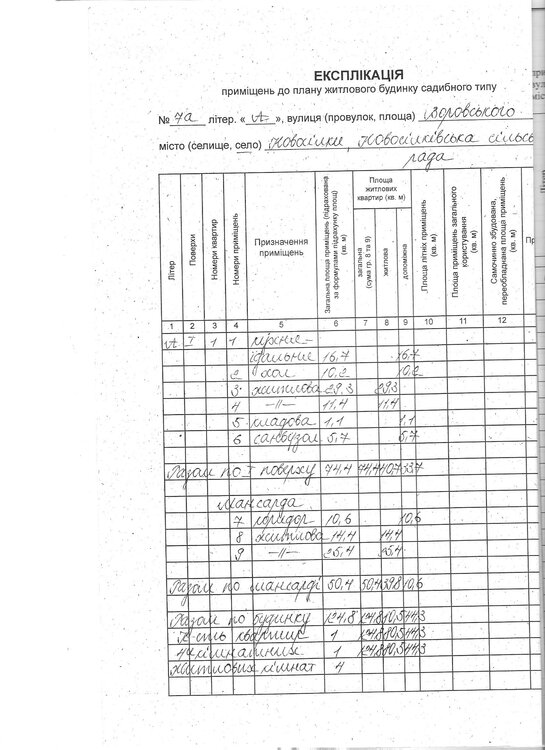 ЕКСПЛІКАЦІЯ
приміщень до плану житлового будинку садибного типу
№ 7а літер. « А », вулиця (провулок, площа) Воровського
місто (селище, село) Новосілки, Новосілківська сільс
рада
Літер
Поверхи
Номери квартир
Номери приміщень
Призначення приміщень
Загальна площа приміщень (підрахована за формулами підрахунку площ) (кв. м)
Площа житлових квартир (кв. м)
загальна (сума гр. 8 та 9)
житлова
допоміжна
Площа літніх приміщень (кв. м)
Площа приміщень загального користування (кв. м)
Самочинно збудована, переобладнана площа приміщень (кв. м)
Пр
1 2 3 4 5 6 7 8 9 10 11 12
А I 1 1 кухня-
їдальня 16,7 16,7
2 хол 10,2 10,2
3 житлова 29,3 29,3
4 —//— 11,4 11,4
5 кладова 1,1 1,1
6 санвузол 5,7 5,7
Разом по I поверху 74,4 74,4 40,7 33,7
Мансарда
7 коридор 10,6 10,6
8 житлова 14,4 14,4
9 —//— 25,4 25,4
Разом по мансарді 50,4 50,4 39,8 10,6
Разом по будинку 124,8 124,8 80,5 44,3
К-сть квартир 1 124,8 80,5 44,3
4х кімнатних 1 124,8 80,5 44,3
житлових кімнат 4